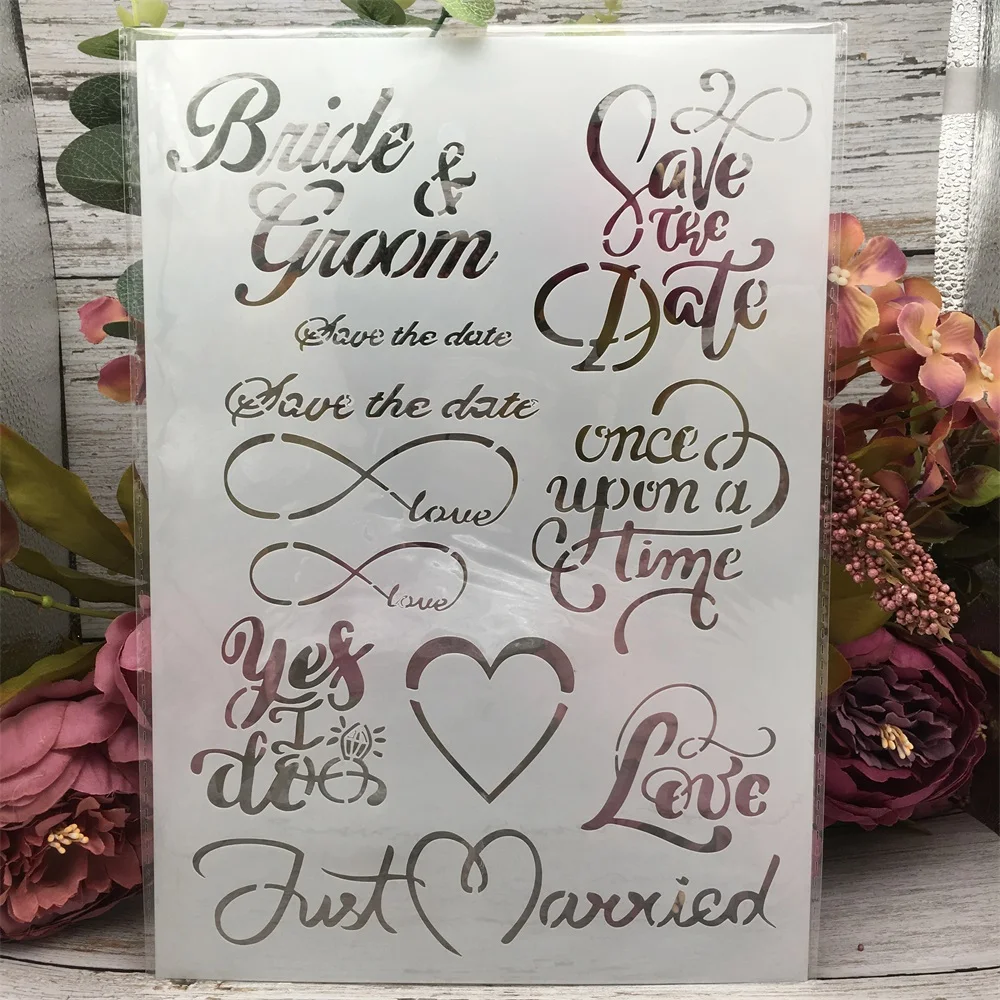 Bride
&
Groom
Save
the
Date
Save the date
Save the date
love
love
once
upon a
time
Yes
I
do
Love
Just Married